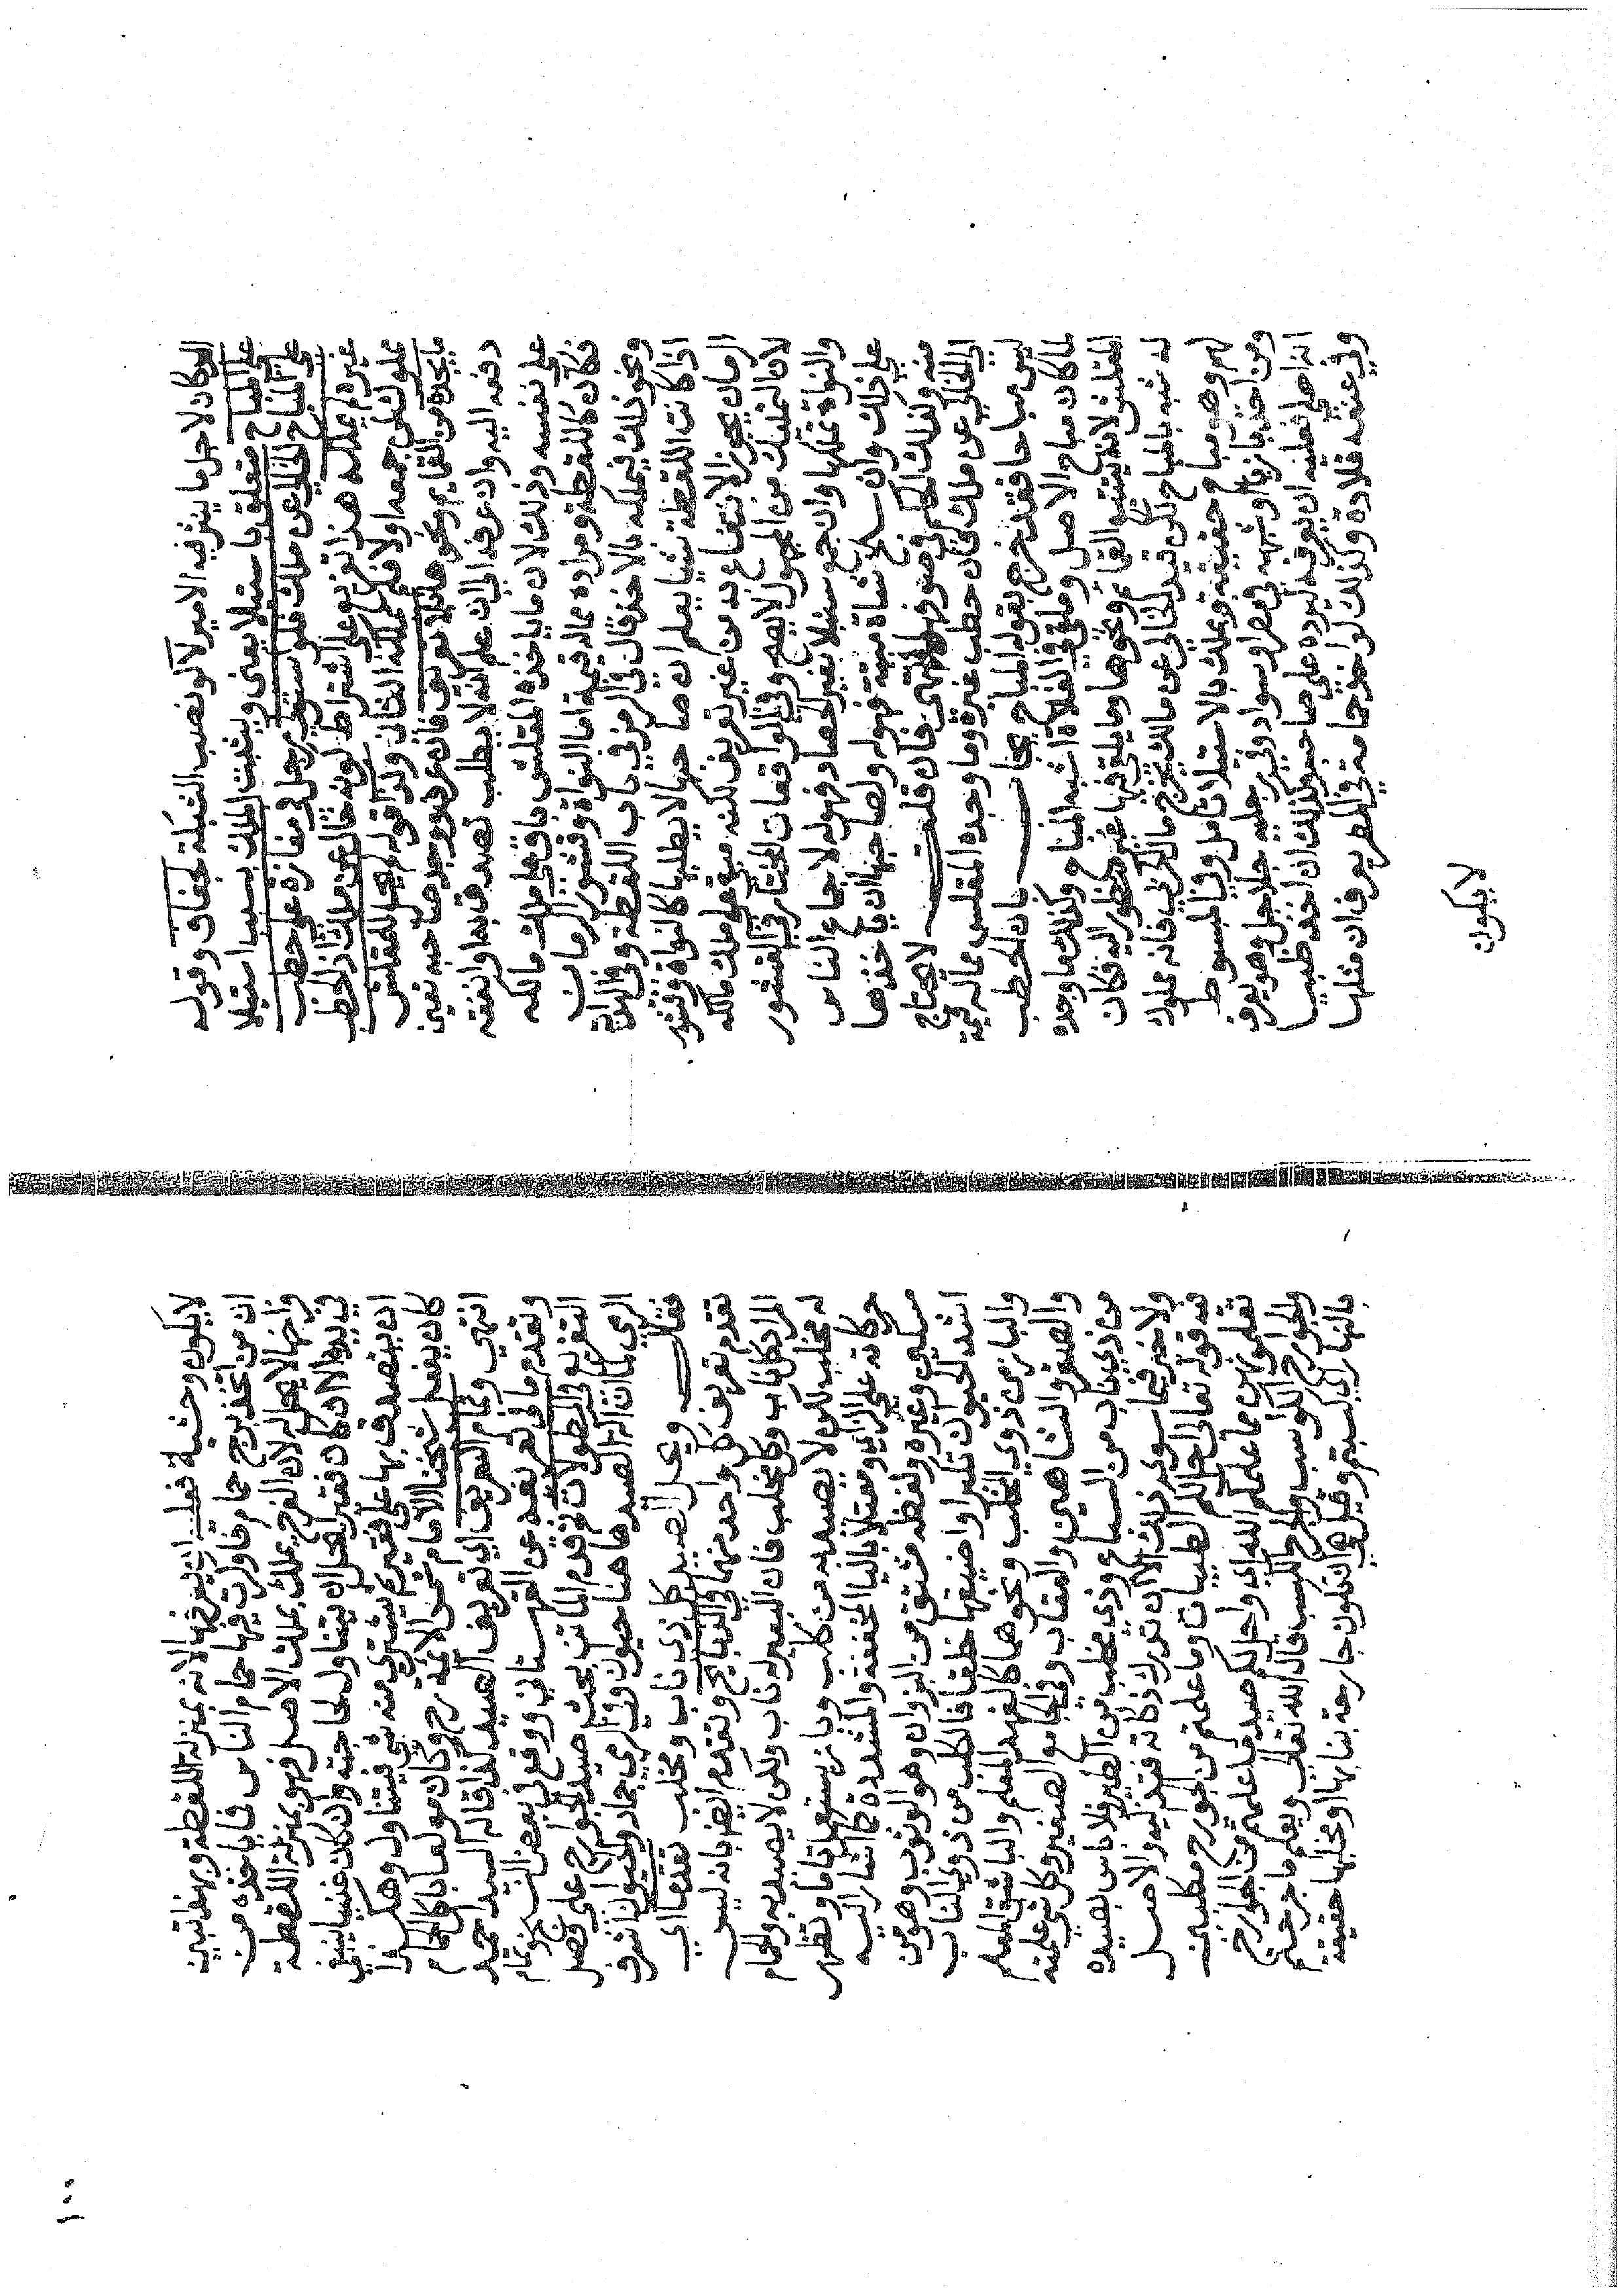 المكان لا جل ما ينثر فيه الامير لا كونصب الشبكة لجفاف وقوله
على المباح متعلق باستيلا يعني ويثبت الملك بسبب استيلا
على المباح الخالي عن ملك فلو استولي رجل في مفازة على حطب
غيره لم يملكه هذا تفريع على اشتراط كونه خال عن ملك اذ الحطب
مملوك لمن جمعه اولا فلم يملكه الثاني ولذا قوله لم يحل للمقلش
ما يجده من القمايم ونحوها بلا تعريف فان عرفه ووجد صاحبه تعين
دفعه اليه وان عرفه الي ان علم انه لا يطلب تصدق به او انفقه
على نفسه وذلك لان ما ياخذه المقلش باق على ملك مالكه
فكان كاللقطة ومراده مما له قيمة اما النواة وقشور الرمان
ونحو ذلك فيملكه بالاخذ قال في الرمز في باب اللقطة وفي الهداية
اذا كانت اللقطة شيا يعلم ان صاحبها لا يطلبها كالنواة وقشور
الرمان يجوز الانتفاع به من غير تعريف لكنه مبقي على ملك مالكه
لان التمليك من المجهول لا يصح وفي الواقعات المختار في القشور
والنواة تملكها وان جمع سنبلا بعد الحصاد فهو له لاجماع الناس
على ذلك وان سلخ شاة ميتة فهو له ولصاحبها ان ياخذها
منه وكذلك الحكم في صوفها انتهى فان قلت لا يحتاج
الى الخالي عن ملك لان حطب غيره وما وجده المقلس مما له قيمة
ليس مباحا فقد خرج بقوله المباح يجاب بان الحطب
لما كان مباح الاصل وملقي في الفلاة اشبه المباح وكذلك ما وجده
المقلش لانه يتتبع القمايم ونحوها وما يلقى فيها غير منظور اليه فكان
له شبه بالمباح لكن قيد الخالي عن مالك يخرج مال الحربي فانه مملوك
لهم وهو مباح حقيقة ويملك بالاستيلا تامل وفي المبسوط
ومن اخذ بازيا او شبهه في مصر او سواد وفي رجليه جلاجل وهو يعرف
انه اهلي فعليه ان يعرفه ليرده على صاحبه وكذلك ان اخذ ظبيا
وفي عنقه قلادة وكذلك لو اخذ حمامة في المصر يعرف ان مثلها
لا يكون
لا يكون وحشية فعليه ان يعرفها لانه بمنزلة اللقطة وبهذا تبين
ان من اتخذ برج حمام فاوكرت فيها حمام الناس فما ياخذه من
فراخها لا يحل له لان الفرخ يملك بملك الاصل فهو بمنزلة اللقطة
في يده الا ان كان فقيرا يحل ان يتناول لحاجته وان كان غنيا ينبغي
ان يتصدق بها على فقير ثم يشتري منه بشي فيتناول وهكذا
كان يفعله شيخنا الامام شمس الايمة رح وكان مولعا باكل الحمام
انتهي وتمام التعريف اي تعريف الصيد كذا قاله السيد احمد
وتقدم ما في تعريفه عن القهستاني ووقع في بعض النسخ وتمام
التفريع في المطولات ثم قدم الماتن بحث صيد الجوارح على فصل
الرمي لما ان الة الصيد هاهنا حيوان وفي الرمي جماد والحيوان اشرف
فقال ويحل الصيد بكل ذي ناب ومخلب تقدما اي
تقدم تعريف كل واحد منهما في الذبايح وتقدم ايضا بانه ليس
المراد كل ناب وكل مخلب فان البعير له ناب ولكن لا يصيد به والحمام
له مخلب لكن لا يصيد به من كلب وباز يستعمل تاما وتظهر
حركاته على الزاي ومعتلا باليا المخففة والمشددة كما اشار اليه
مسكين وغيره ولفظه مشتق من البزوان وهو الوثوب وهو من
اشد الحيوان تكبرا واضيقها خلقا فالكلب من ذوي الناب
والباز من ذوي المخلب ونحوهما كالفهد المعلم والباشق المعلم
والصقر والشاهين والعقاب وفي الجامع الصغير وكل شي علمته
من ذي ناب من السباع وذي مخلب من الطير فلا باس بصيده
ولا خير فيما سوى ذلك الا ان تدرك ذكاته فتذكيه والاصل
فيه قوله تعالى احل لكم الطيبات وما علمتم من الجوارح مكلبين
تعلمونهن مما علمكم الله اي واحل لكم صيد ما علمتم من الجوارح
والجوارح الكواسب والجرح الكسب قال الله تعالى ويعلم ما جرحتم
بالنهار اي كسبتم وقيل هي ان تكون جارحة بنابها او مخلبها حقيقة
١٠٠